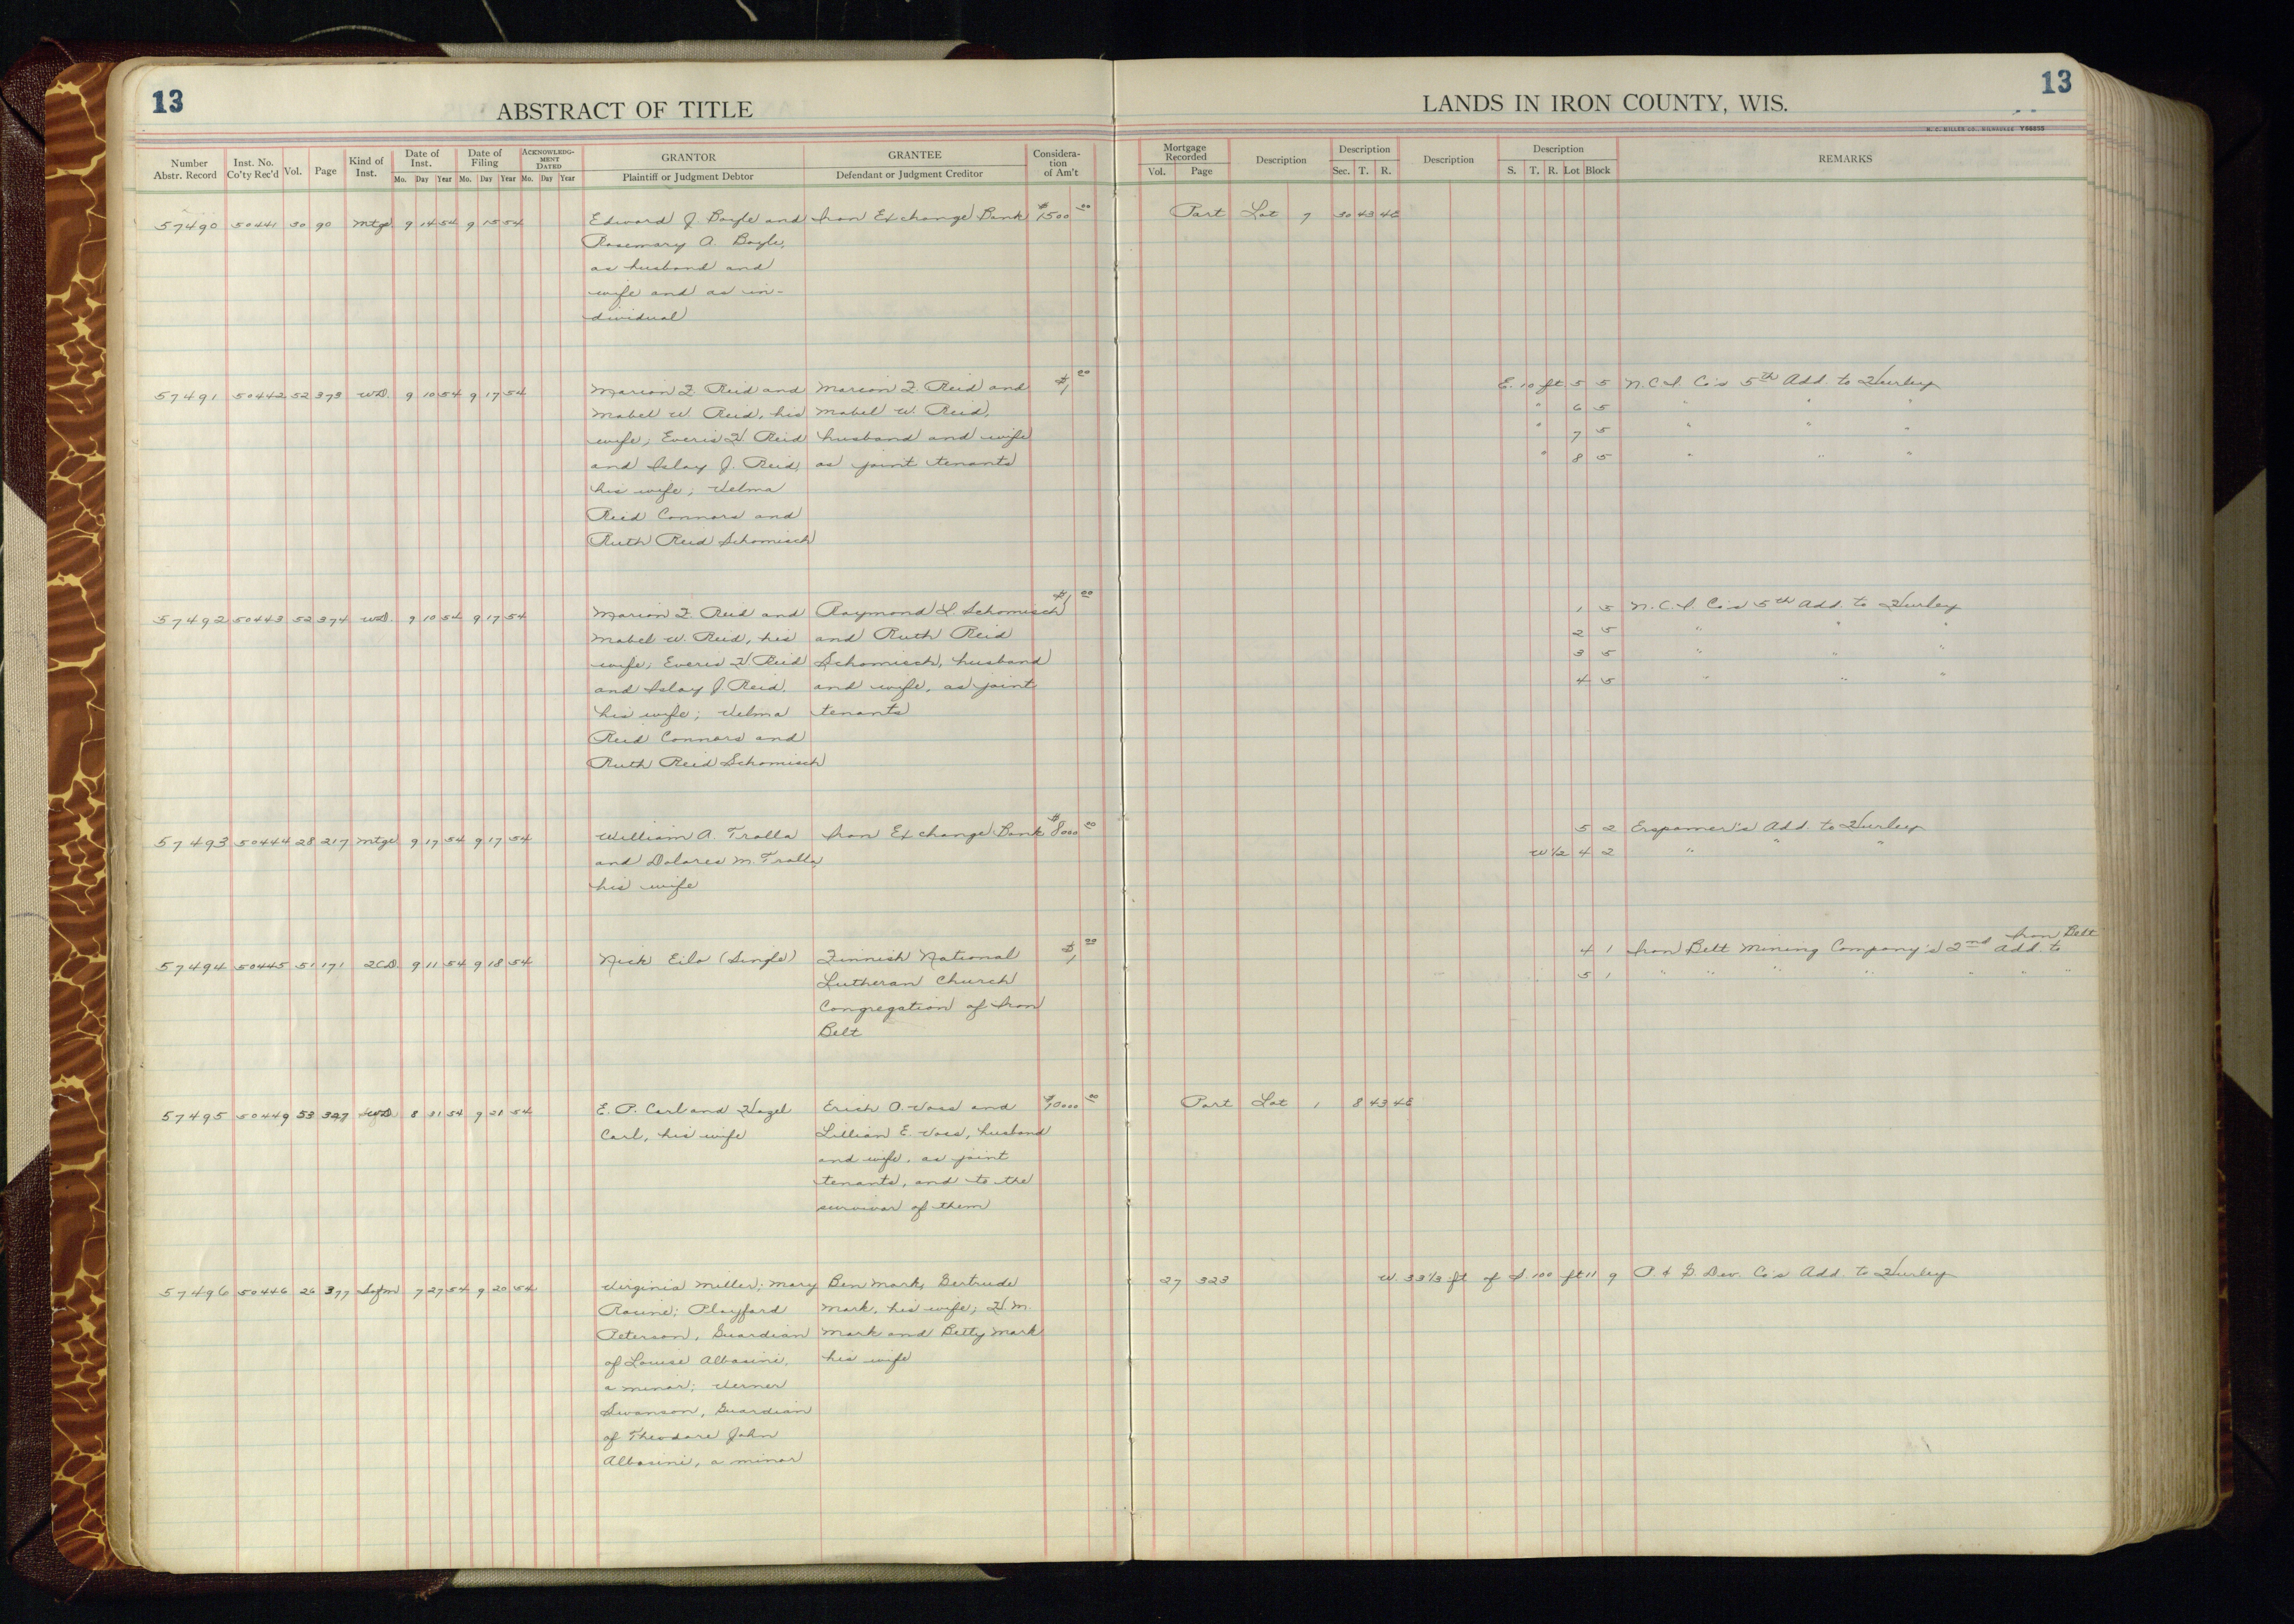 13
ABSTRACT OF TITLE
LANDS IN IRON COUNTY, WIS.
13
H. C. MILLER CO., MILWAUKEE Y56835
Number Abstr. Record Inst. No. Co'ty Rec'd Vol. Page Kind of Inst. Date of Inst. Mo. Day Year Date of Filing Mo. Day Year ACKNOWLEDGMENT DATED Mo. Day Year GRANTOR Plaintiff or Judgment Debtor GRANTEE Defendant or Judgment Creditor Consideration of Am't Mortgage Recorded Vol. Page Description Description Sec. T. R. Description Description S. T. R. Lot Block REMARKS
57490 50441 30 90 Mtge 9 14 54 9 15 54 Edward J. Boyle and Iron Exchange Bank $1500 00 Part Lot 7 30 43 4E
Rosemary A. Boyle,
as husband and
wife and as in-
dividual
57491 50442 52 373 W.D. 9 10 54 9 17 54 Marion F. Reid and Marion F. Reid and $1 00 E. 10 ft 5 5 N.C.I. Co's 5th Add. to Hurley
Mabel W. Reid, his Mabel W. Reid, " 6 5 " " "
wife; Everis H. Reid husband and wife " 7 5 " " "
and Islay J. Reid, as joint tenants " 8 5 " " "
his wife; Velma
Reid Connors and
Ruth Reid Schomisch
57492 50443 52 374 W.D. 9 10 54 9 17 54 Marion F. Reid and Raymond L. Schomisch $1 00 1 5 N.C.I. Co's 5th Add. to Hurley
Mabel W. Reid, his and Ruth Reid 2 5 " " "
wife; Everis H Reid Schomisch, husband 3 5 " " "
and Islay J Reid, and wife, as joint 4 5 " " "
his wife; Velma tenants
Reid Connors and
Ruth Reid Schomisch
57493 50444 28 217 Mtge 9 17 54 9 17 54 William A. Tralla Iron Exchange Bank $8000 00 5 2 Erspamer's Add. to Hurley
and Dolores M. Tralla, W 1/2 4 2 " " "
his wife
57494 50445 51 171 2CD 9 11 54 9 18 54 Nick Eilo (Single) Finnish National $1 00 4 1 Iron Belt Mining Company's 2nd Add. to Iron Belt
Lutheran Church 5 1 " " " " " " "
Congregation of Iron
Belt
57495 50449 53 327 WD 8 31 54 9 21 54 E. P. Carl and Hazel Erich O. Voss and $10000 00 Part Lot 1 8 43 4E
Carl, his wife Lillian E. Voss, husband
and wife, as joint
tenants, and to the
survivor of them
57496 50446 26 377 Sofm 7 27 54 9 20 54 Virginia Miller; Mary Ben Mark, Gertrude 27 323 W. 33 1/3 ft of S. 100 ft 11 9 P. & G. Dev. Co's Add. to Hurley
Racine; Playford Mark, his wife; H. M.
Peterson, Guardian Mark and Betty Mark
of Louise Albasini, his wife
a minor; Verner
Swanson, Guardian
of Theodore John
Albasini, a minor